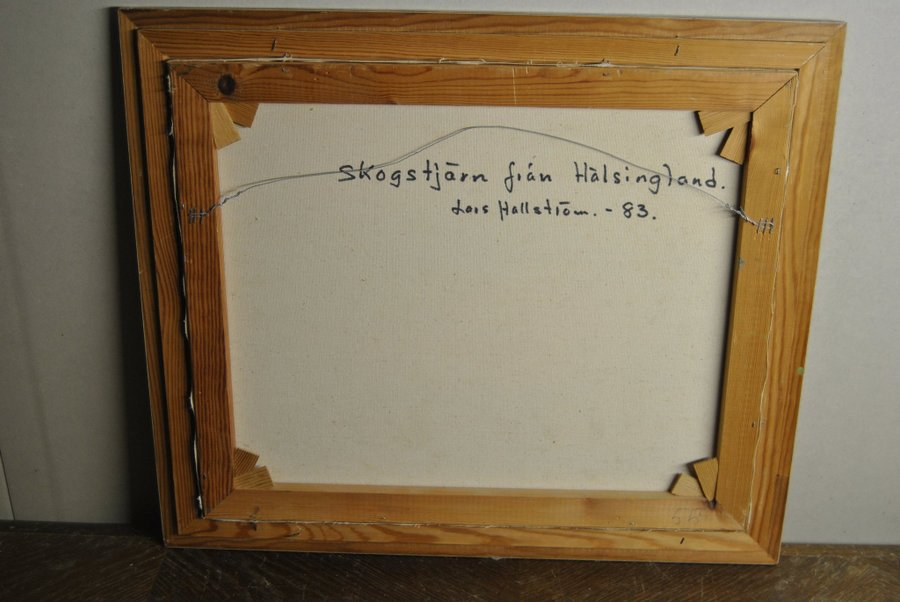 Skogstjärn från Hälsingland.
Lars Hallström. - 83.
55